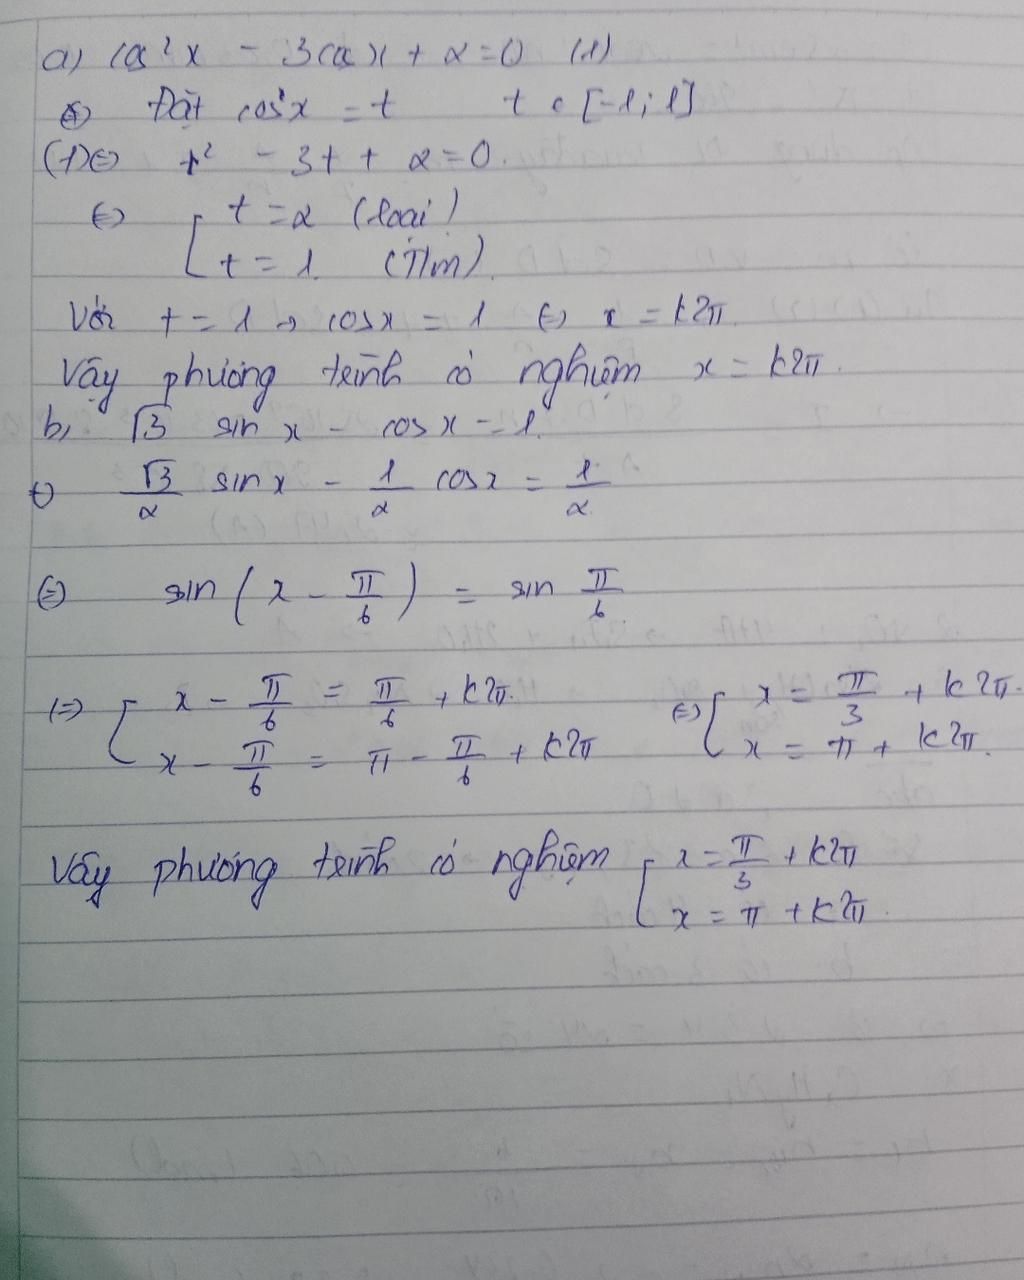 a) cos²x - 3cosx + 2 = 0 (1)
⇔ Đặt cosx = t t ∈ [-1; 1]
(1) ⇔ t² - 3t + 2 = 0.
⇔ [ t = 2 (loại)
t = 1 (T/m)
Với t = 1 → cosx = 1 ⇔ x = k2π
Vậy phương trình có nghiệm x = k2π.
b, √3 sin x - cos x = 1
⇔ √3/2 sin x - 1/2 cos x = 1/2
⇔ sin(x - π/6) = sin π/6
⇔ [ x - π/6 = π/6 + k2π. ⇔ [ x = π/3 + k2π.
x - π/6 = π - π/6 + k2π x = π + k2π.
Vậy phương trình có nghiệm [ x = π/3 + k2π
x = π + k2π.